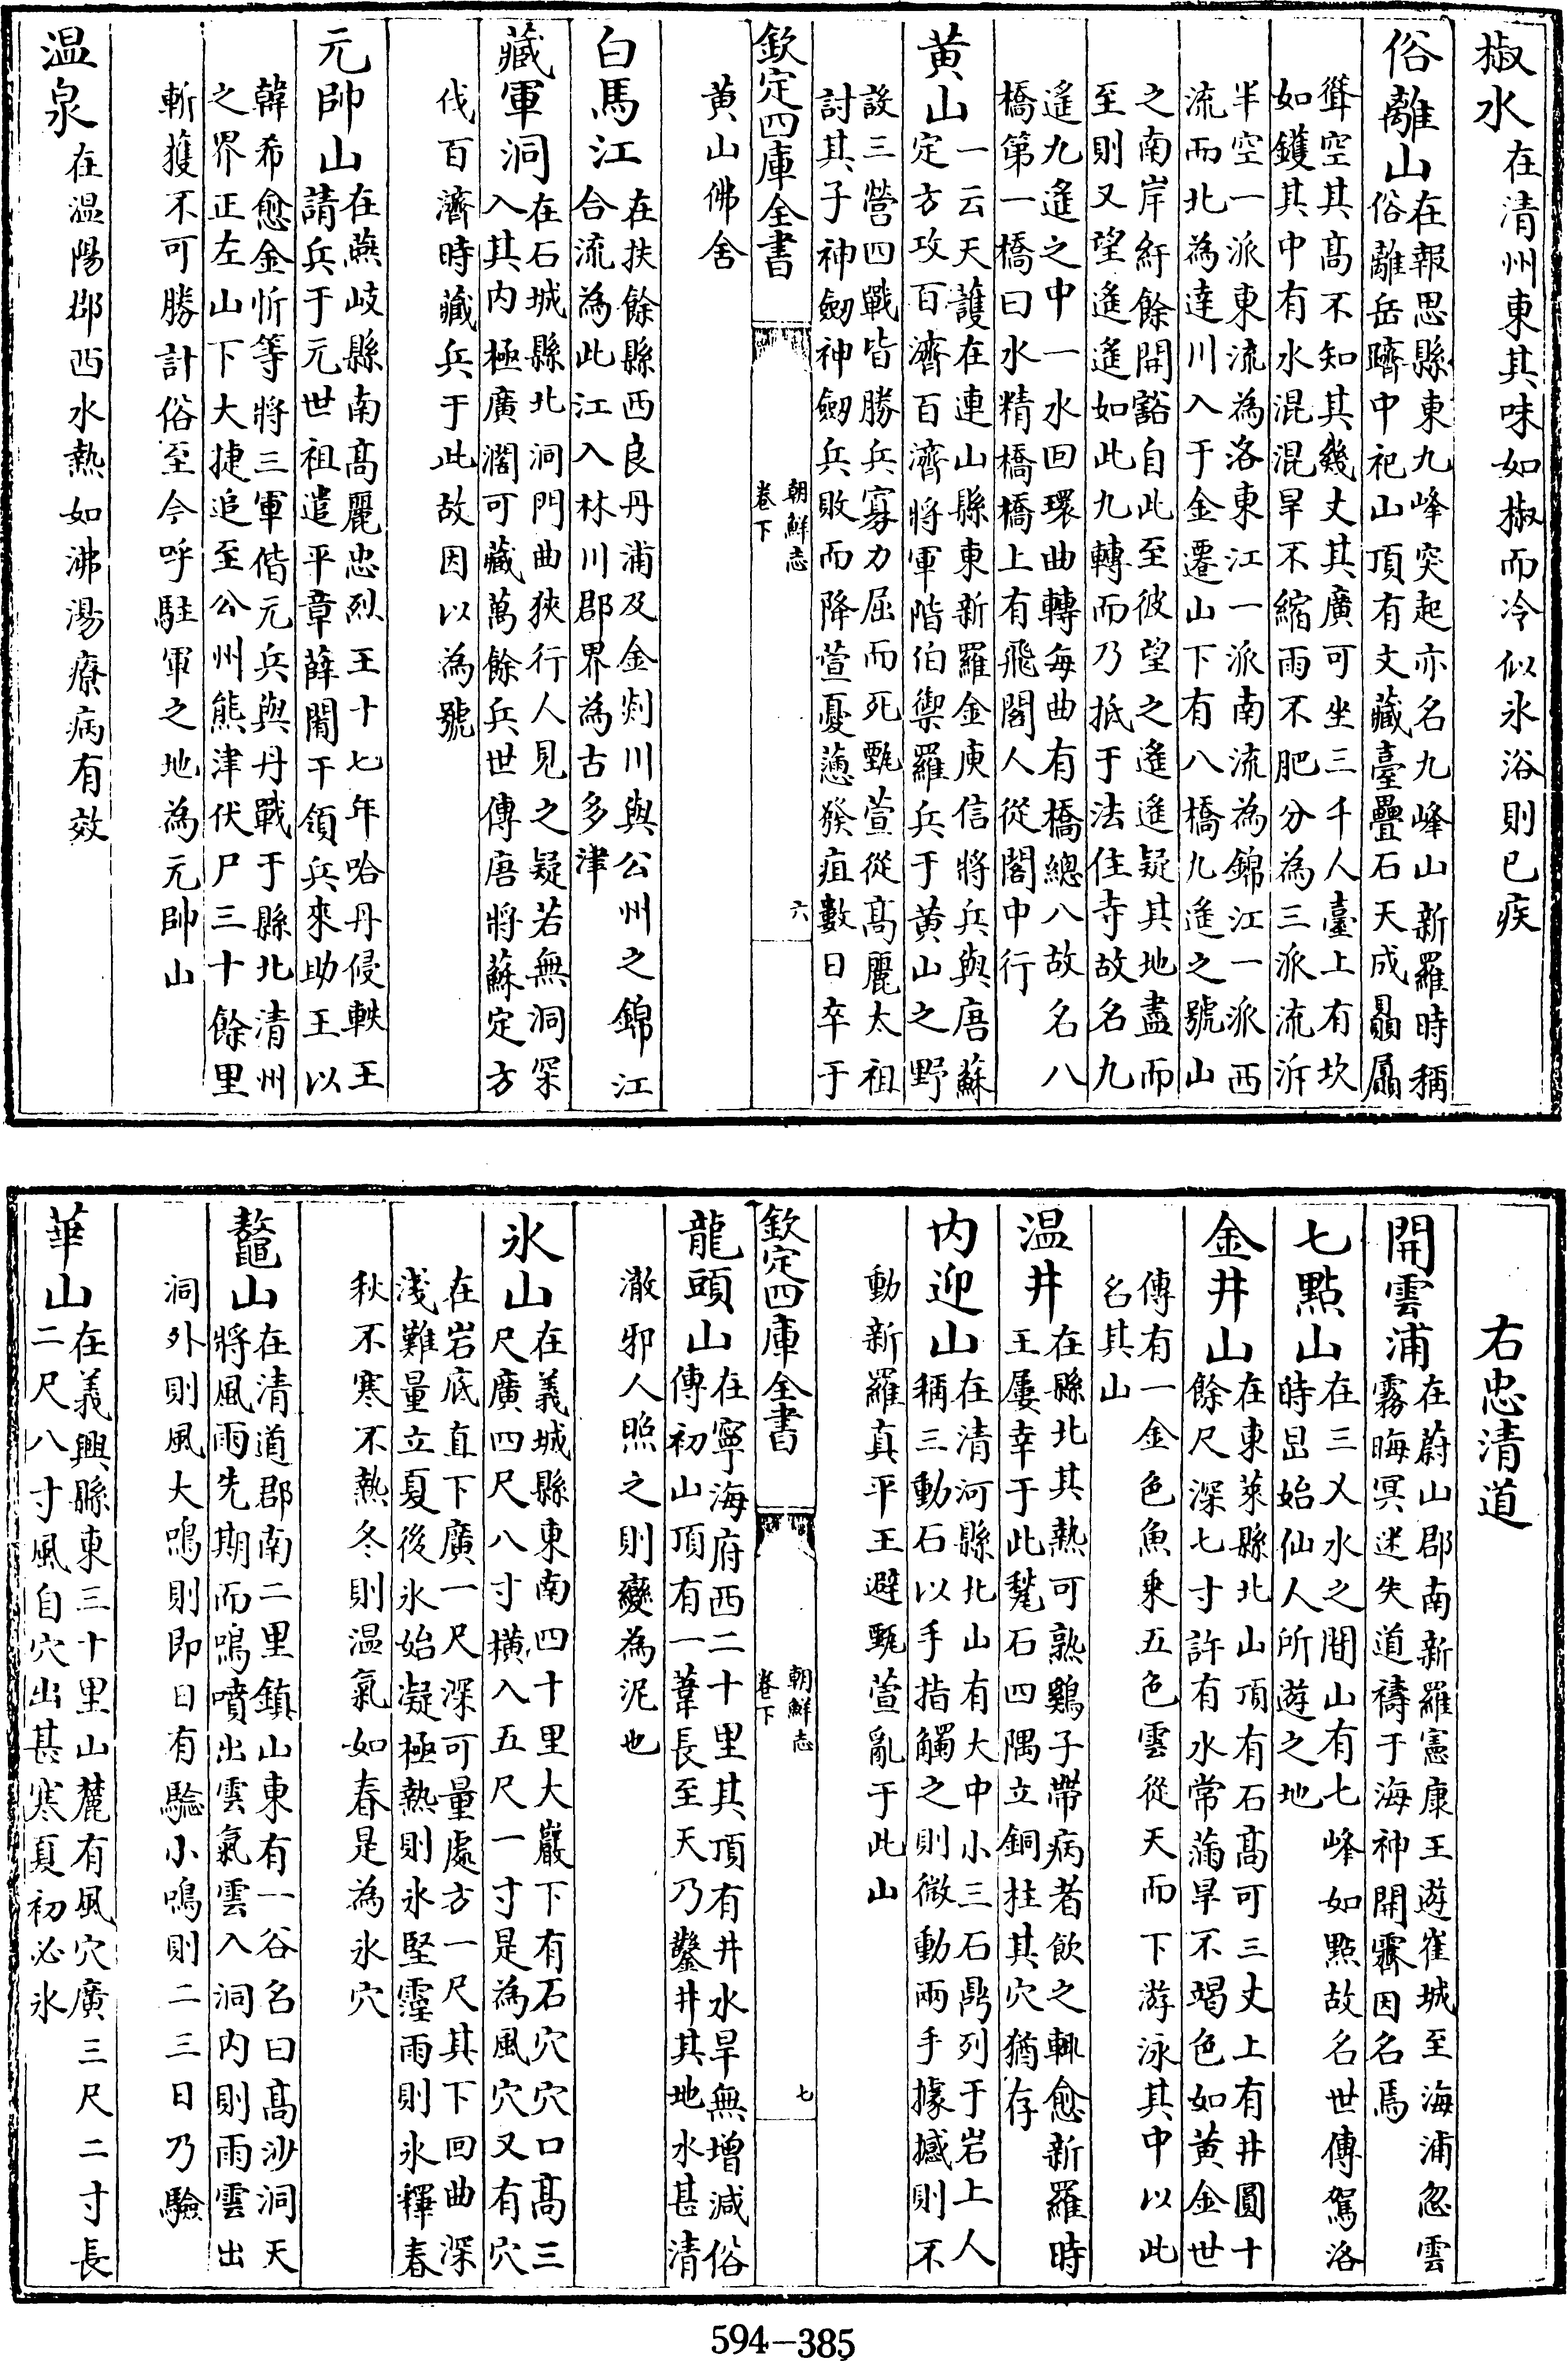 椒水 在清州東其味如椒而冷似氷浴則已疾
俗離山 在報思縣東九峰突起亦名九峰山新羅時稱
俗離岳躋中祀山頂有文藏臺疊石天成贔屭
聳空其髙不知其幾丈其廣可坐三千人臺上有坎
如鑊其中有水混混旱不縮雨不肥分為三派流泝
半空一派東流為洛東江一派南流為錦江一派西
流而北為達川入于金遷山下有八橋九遙之號山
之南岸紆餘開豁自此至彼望之遙遙疑其地盡而
至則又望遙遙如此九轉而乃抵于法住寺故名九
遙九遙之中一水回環曲轉每曲有橋總八故名八
橋第一橋曰水精橋橋上有飛閣人從閣中行
黄山 一云天護在連山縣東新羅金庾信將兵與唐蘇
定方攻百濟百濟將軍階伯禦羅兵于黄山之野
設三營四戰皆勝兵寡力屈而死甄萱從髙麗太祖
討其子神劒神劒兵敗而降萱憂懣發疽數日卒于
欽定四庫全書 朝鮮志
卷下 六
黄山佛舍
白馬江 在扶餘縣西良丹浦及金剡川與公州之錦江
合流為此江入林川郡界為古多津
藏軍洞 在石城縣北洞門曲狹行人見之疑若無洞深
入其内極廣濶可藏萬餘兵世傳唐將蘇定方
伐百濟時藏兵于此故因以為號
元帥山 在燕岐縣南髙麗忠烈王十七年哈丹侵軼王
請兵于元世祖遣平章薛闍干領兵來助王以
韓希愈金忻等將三軍偕元兵與丹戰于縣北清州
之界正左山下大捷追至公州熊津伏尸三十餘里
斬獲不可勝計俗至今呼駐軍之地為元帥山
温泉 在温陽郡西水熱如沸湯療病有效
右忠清道
開雲浦 在蔚山郡南新羅憲康王遊崔城至海浦忽雲
霧晦冥迷失道禱于海神開霽因名焉
七點山 在三乂水之間山有七峰如點故名世傳駕洛
時旵始仙人所遊之地
金井山 在東萊縣北山頂有石髙可三丈上有井圓十
餘尺深七寸許有水常滿旱不竭色如黄金世
傳有一金色魚乘五色雲從天而下游泳其中以此
名其山
温井 在縣北其熱可熟鷄子帶病者飲之輒愈新羅時
王屢幸于此甃石四隅立銅柱其穴猶存
内迎山 在清河縣北山有大中小三石鼎列于岩上人
稱三動石以手指觸之則微動兩手據撼則不
動新羅真平王避甄萱亂于此山
欽定四庫全書 朝鮮志
卷下 七
龍頭山 在寧海府西二十里其頂有井水旱無增減俗
傳初山頂有一葦長至天乃鑿井其地水甚清
澈邪人照之則變為泥也
氷山 在義城縣東南四十里大巖下有石穴穴口髙三
尺廣四尺八寸橫入五尺一寸是為風穴又有穴
在岩底直下廣一尺深可量處方一尺其下回曲深
淺難量立夏後氷始凝極熱則氷堅霪雨則氷釋春
秋不寒不熱冬則温氣如春是為氷穴
鼇山 在清道郡南二里鎮山東有一谷名曰髙沙洞天
將風雨先期而鳴噴出雲氣雲入洞内則雨雲出
洞外則風大鳴則即日有驗小鳴則二三日乃驗
華山 在義興縣東三十里山麓有風穴廣三尺二寸長
二尺八寸風自穴出甚寒夏初必氷
594-385